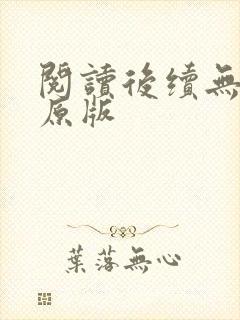 閱讀後续無
原版
葉落無心